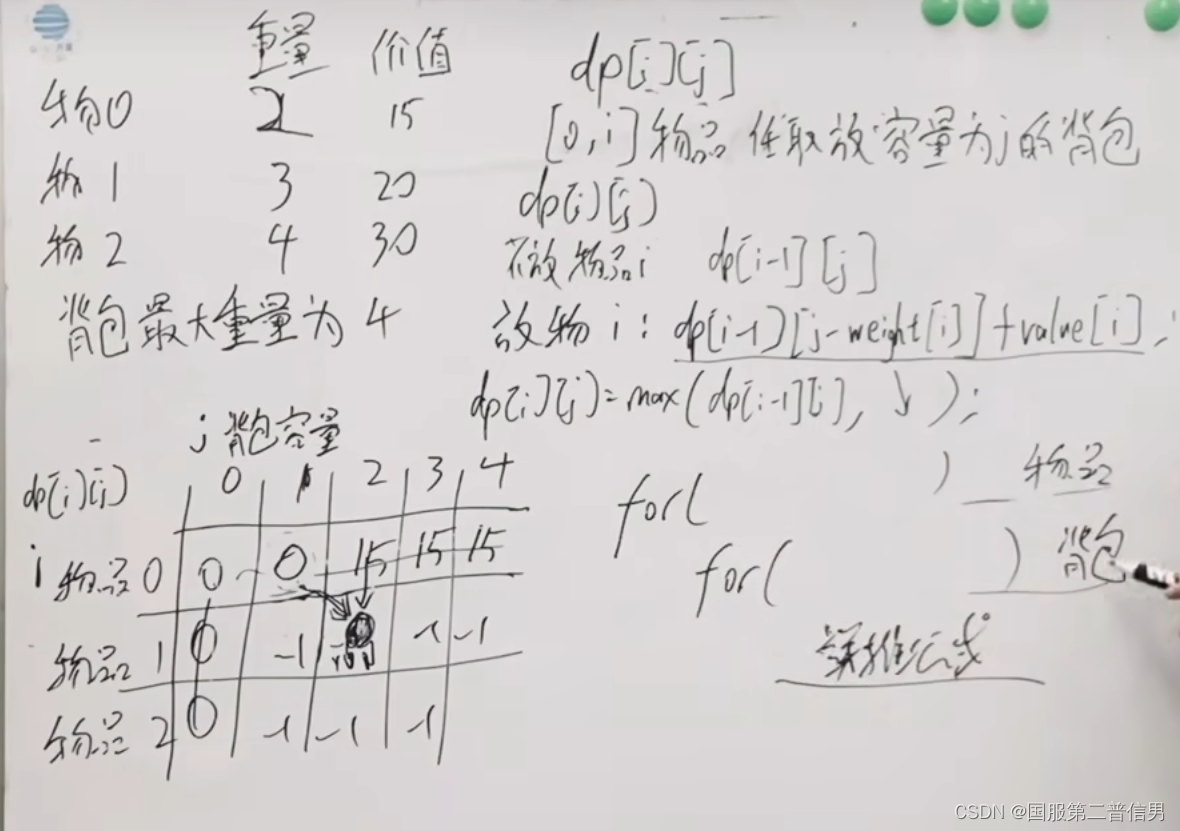 重量 价值
物0 15
物1 3 20
物2 4 30
背包最大重量为4
dp[i][j]
[0,i]物品 任取放容量为j的背包
dp[i][j]
不放物品i dp[i-1][j]
放物i: dp[i-1][j-weight[i]]+value[i];
dp[i][j]=max(dp[i-1][j], ↓ );
j 背包容量
dp[i][j] 0 1 2 3 4
i 物品0 0 0 15 15 15
物品1 0 -1 -1 -1
物品2 0 -1 -1 -1
for( ) 物品
for( ) 背包
递推公式
CSDN @国服第二普信男